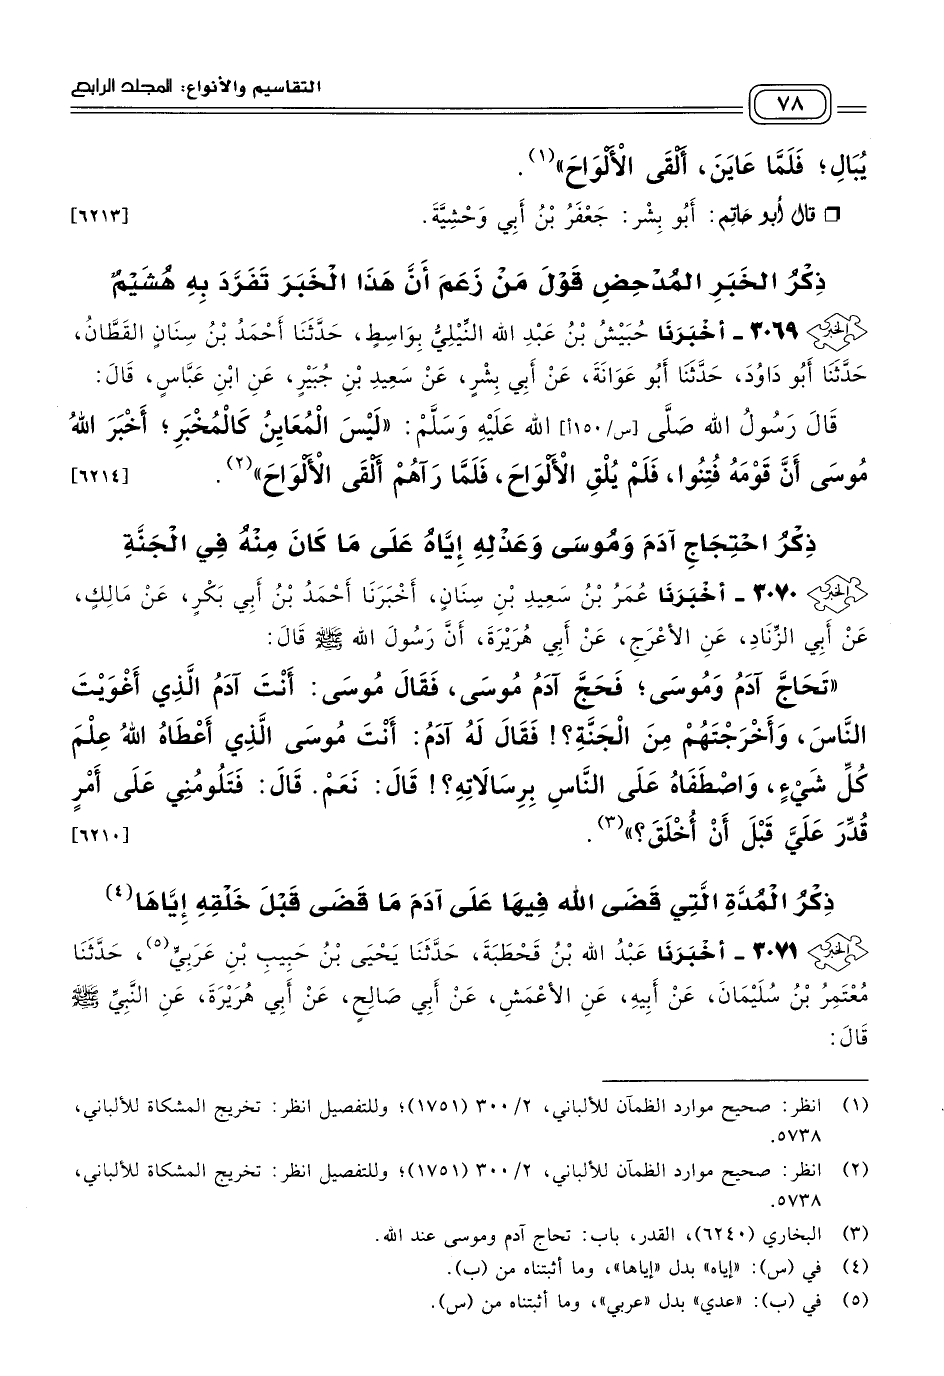 ٧٨
التقاسيم والأنواع: المجلد الرابع
يُبَالِ؛ فَلَمَّا عَايَنَ، أَلْقَى الْأَلْوَاحَ»(١).
❒ قال أبو حاتم: أَبُو بِشْر: جَعْفَرُ بْنُ أَبِي وَحْشِيَّةَ. [٦٢١٣]
ذِكْرُ الخَبَرِ المُدْحِضِ قَوْلَ مَنْ زَعَمَ أَنَّ هَذَا الْخَبَرَ تَفَرَّدَ بِهِ هُشَيْمٌ
٣٠٦٩ - أَخْبَرَنَا حُبَيْشُ بْنُ عَبْدِ الله النِّيْلِيُّ بِوَاسِطٍ، حَدَّثَنَا أَحْمَدُ بْنُ سِنَانٍ القَطَّانُ،
حَدَّثَنَا أَبُو دَاوُدَ، حَدَّثَنَا أَبُو عَوَانَةَ، عَنْ أَبِي بِشْرٍ، عَنْ سَعِيدِ بْنِ جُبَيْرٍ، عَنِ ابْنِ عَبَّاسٍ، قَالَ:
قَالَ رَسُولُ الله صَلَّى [س/١٥٠أ] الله عَلَيْهِ وَسَلَّمْ: «لَيْسَ الْمُعَايِنُ كَالْمُخْبَرِ؛ أَخْبَرَ اللهُ
مُوسَى أَنَّ قَوْمَهُ فُتِنُوا، فَلَمْ يُلْقِ الْأَلْوَاحَ، فَلَمَّا رَآهُمْ أَلْقَى الْأَلْوَاحَ»(٢). [٦٢١٤]
ذِكْرُ احْتِجَاجِ آدَمَ وَمُوسَى وَعَذْلِهِ إِيَّاهُ عَلَى مَا كَانَ مِنْهُ فِي الْجَنَّةِ
٣٠٧٠ - أَخْبَرَنَا عُمَرُ بْنُ سَعِيدِ بْنِ سِنَانٍ، أَخْبَرَنَا أَحْمَدُ بْنُ أَبِي بَكْرٍ، عَنْ مَالِكٍ،
عَنْ أَبِي الزِّنَادِ، عَنِ الأَعْرَجِ، عَنْ أَبِي هُرَيْرَةَ، أَنَّ رَسُولَ الله ﷺ قَالَ:
«تَحَاجَّ آدَمُ وَمُوسَى؛ فَحَجَّ آدَمُ مُوسَى، فَقَالَ مُوسَى: أَنْتَ آدَمُ الَّذِي أَغْوَيْتَ
النَّاسَ، وَأَخْرَجْتَهُمْ مِنَ الْجَنَّةِ؟! فَقَالَ لَهُ آدَمُ: أَنْتَ مُوسَى الَّذِي أَعْطَاهُ اللهُ عِلْمَ
كُلِّ شَيْءٍ، وَاصْطَفَاهُ عَلَى النَّاسِ بِرِسَالَاتِهِ؟! قَالَ: نَعَمْ. قَالَ: فَتَلُومُنِي عَلَى أَمْرٍ
قُدِّرَ عَلَيَّ قَبْلَ أَنْ أُخْلَقَ؟»(٣). [٦٢١٠]
ذِكْرُ الْمُدَّةِ الَّتِي قَضَى الله فِيهَا عَلَى آدَمَ مَا قَضَى قَبْلَ خَلْقِهِ إِيَّاهَا(٤)
٣٠٧١ - أَخْبَرَنَا عَبْدُ الله بْنُ قَحْطَبَةَ، حَدَّثَنَا يَحْيَى بْنُ حَبِيبِ بْنِ عَرَبِيٍّ(٥)، حَدَّثَنَا
مُعْتَمِرُ بْنُ سُلَيْمَانَ، عَنْ أَبِيهِ، عَنِ الأَعْمَشِ، عَنْ أَبِي صَالِحٍ، عَنْ أَبِي هُرَيْرَةَ، عَنِ النَّبِيِّ ﷺ
قَالَ:
(١) انظر: صحيح موارد الظمآن للألباني، ٣٠٠/٢ (١٧٥١)؛ وللتفصيل انظر: تخريج المشكاة للألباني،
٥٧٣٨.
(٢) انظر: صحيح موارد الظمآن للألباني، ٣٠٠/٢ (١٧٥١)؛ وللتفصيل انظر: تخريج المشكاة للألباني،
٥٧٣٨.
(٣) البخاري (٦٢٤٠)، القدر، باب: تحاج آدم وموسى عند الله.
(٤) في (س): «إياه» بدل «إياها»، وما أثبتناه من (ب).
(٥) في (ب): «عدي» بدل «عربي»، وما أثبتناه من (س).